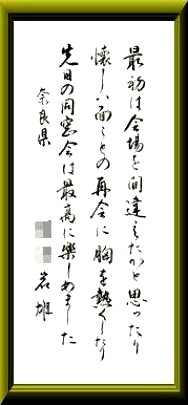 最初は会場を間違えたかと思ったり
懐しい面々との再会に胸を熱くしたり
先日の同窓会は最高に楽しめました
奈良県
岩雄